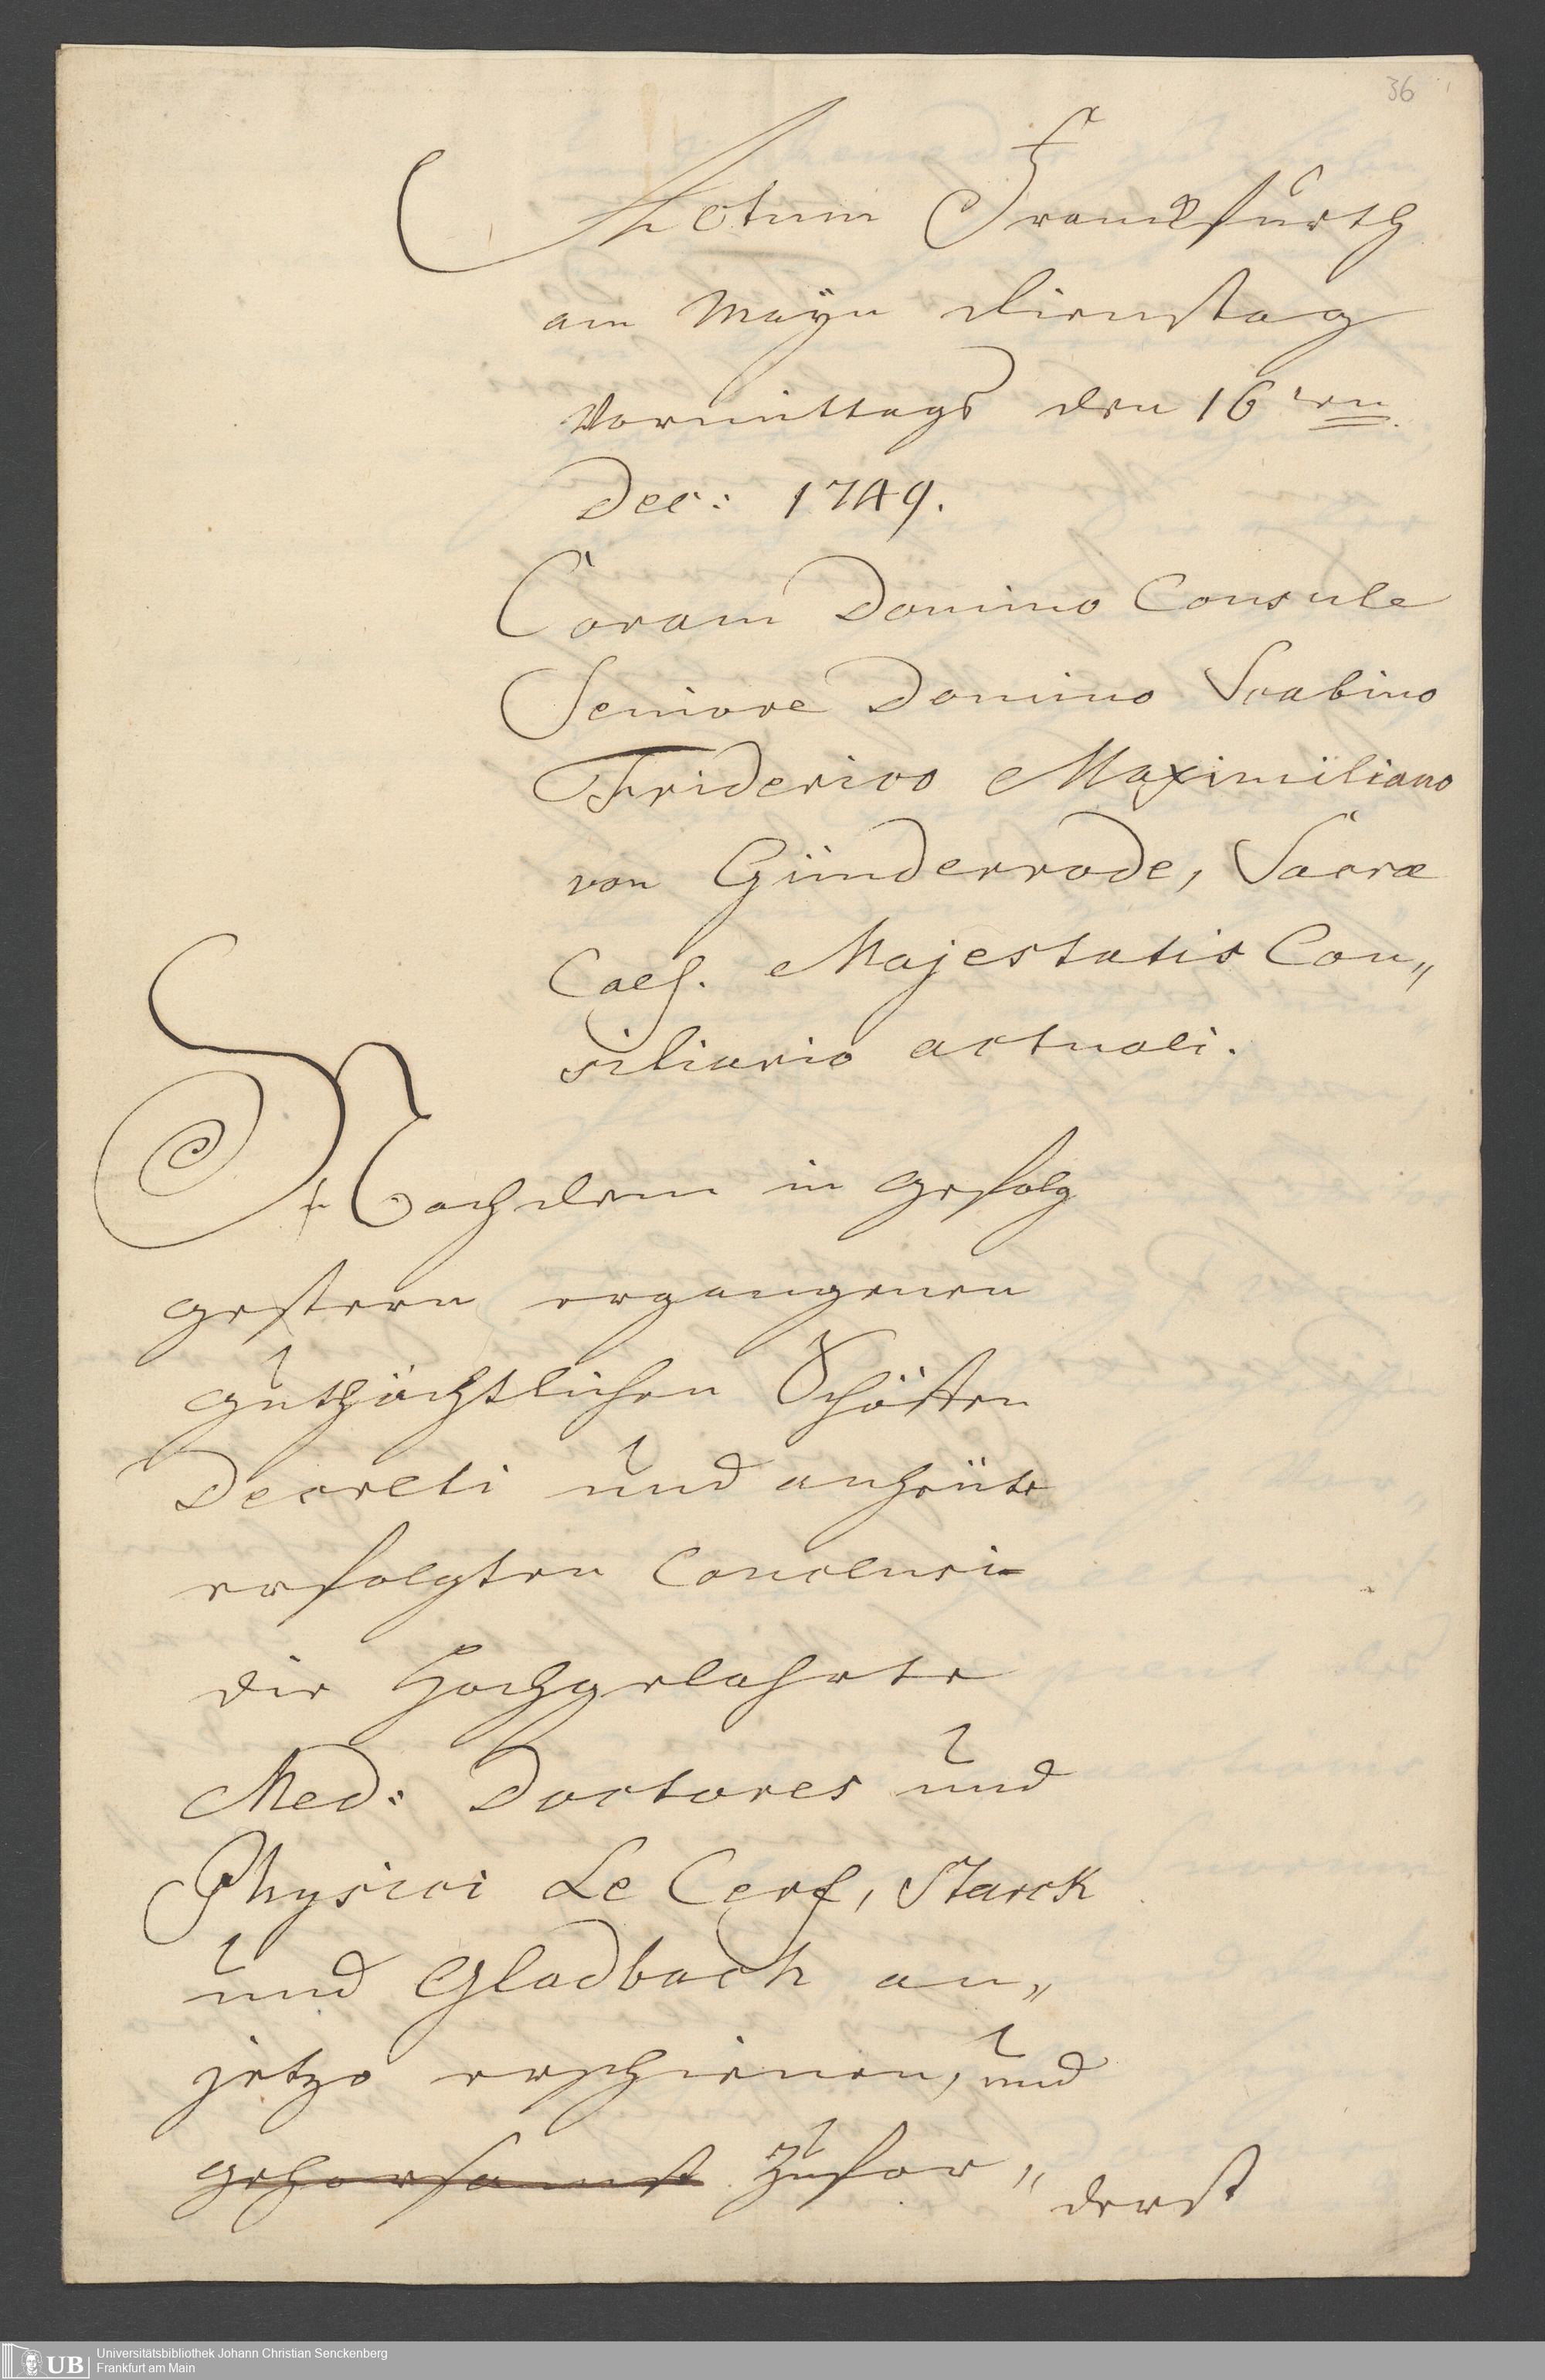 36
Actum Franckfurth
am Mayn Dienstag
Vormittags den 16ten
Dec: 1749.
Coram Domino Consule
Seniore Domino Scabino
Friderico Maximiliano
von Günderrode, Sacræ
Caes. Majestatis Con„
siliario actuali.
Nachdem in gefolg
gestern ergangenen
guthächtlichen Schöffen
Decreti und anheute
erfolgten Conclusi
die Hochgelahrte
Med: Doctores und
Physici Le Cerf, Starck
und Gladbach an„
jetzo erschienen, und
gehorsamst zufor„
derst
Universitätsbibliothek Johann Christian Senckenberg
Frankfurt am Main
UB